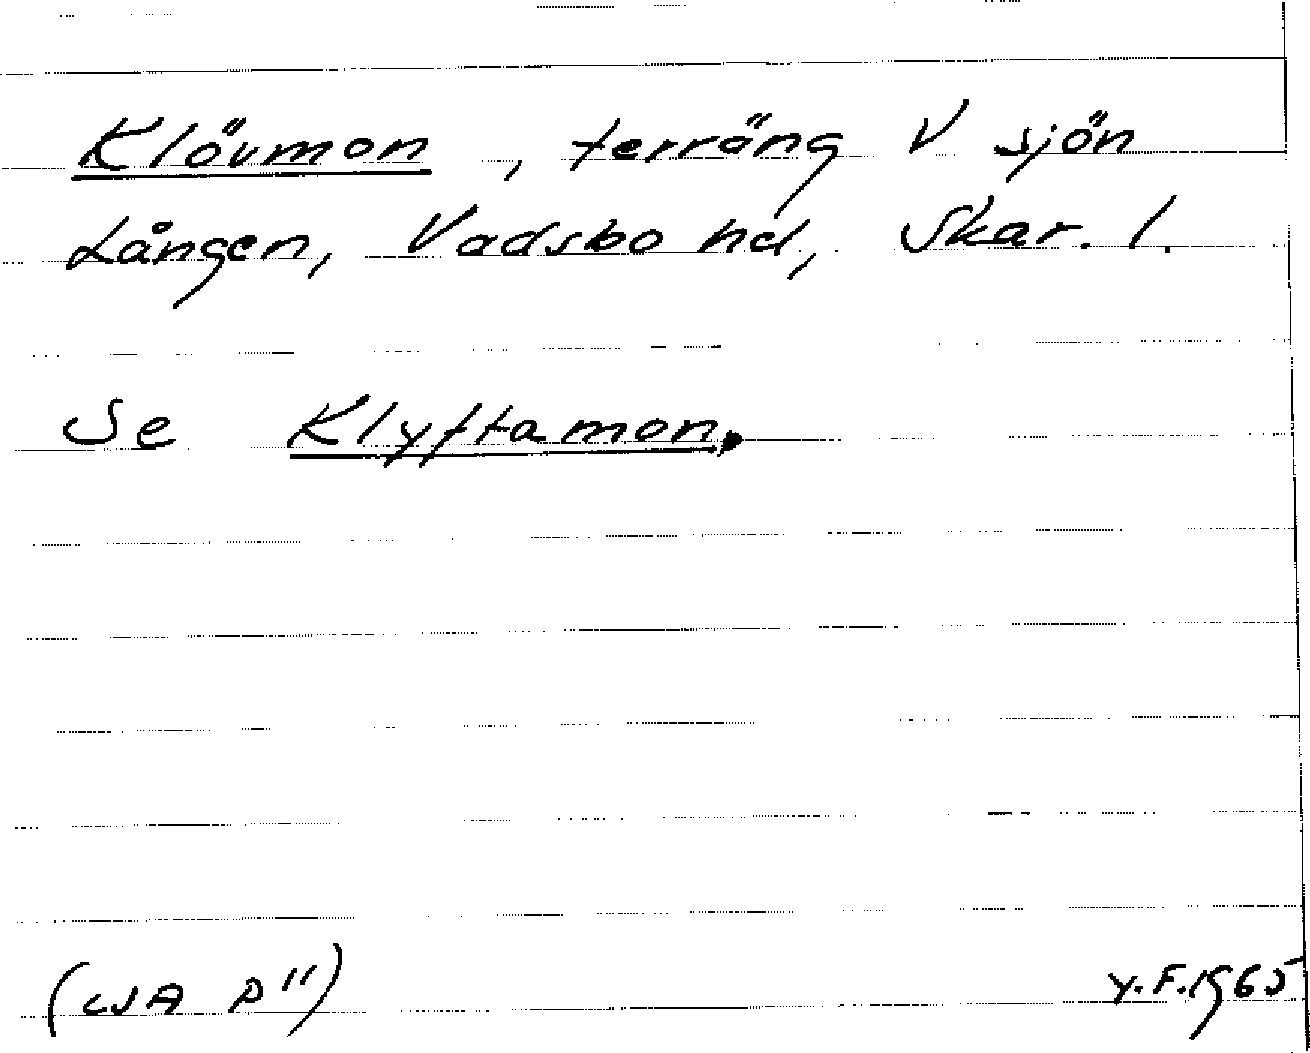 Klövmon, terräng V sjön
Lången, Vadsbo hd, Skar. l.
Se Klyftamon.
Y.F. 1965